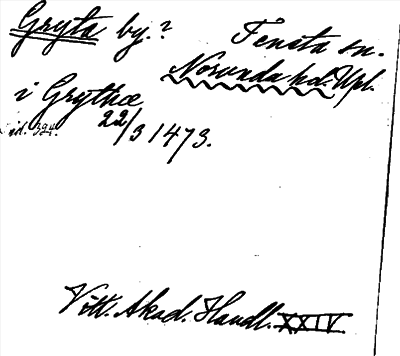 Gryta by.? Tensta sn.
Norunda hd. Upl.
i Grythæ
sid. 324. 22/3 1473.
Vitt. Akad. Handl. XXIV.